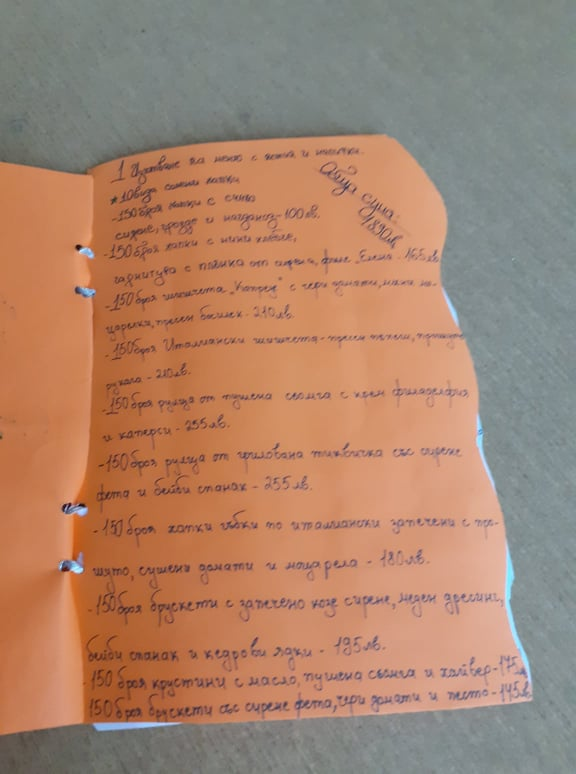 1 Изготвяне на меню с хапки и
Обща сума:
1,890лв
*10 вида солени хапки
-150 броя хапки с синьо
сирене, грозде и магданоз - 100лв.
-150 броя хапки с мини хлебче,
гарнитура с плънка от сирена, филе "Елена" - 165лв
-150 броя шишчета "Капрезе" с чери домати, мини мо-
царелки, пресен босилек - 210лв.
-150 броя Италиански шишчета - пресен пъпеш, прошуто
рукола - 210лв.
-150 броя рулца от пушена сьомга с крем филаделфия
и каперси - 255лв.
-150 броя рулца от грилована тиквичка със сирене
фета и бейби спанак - 255лв.
-150 броя хапки гъби по италиански запечени с про-
шуто, сушени домати и моцарела - 180лв.
-150 броя брускети с запечено козе сирене, меден дресинг,
бейби спанак и кедрови ядки - 195лв.
-150 броя крустини с масло, пушена сьомга и хайвер - 175лв
150 броя брускети със сирене фета, чери домати и песто - 145лв